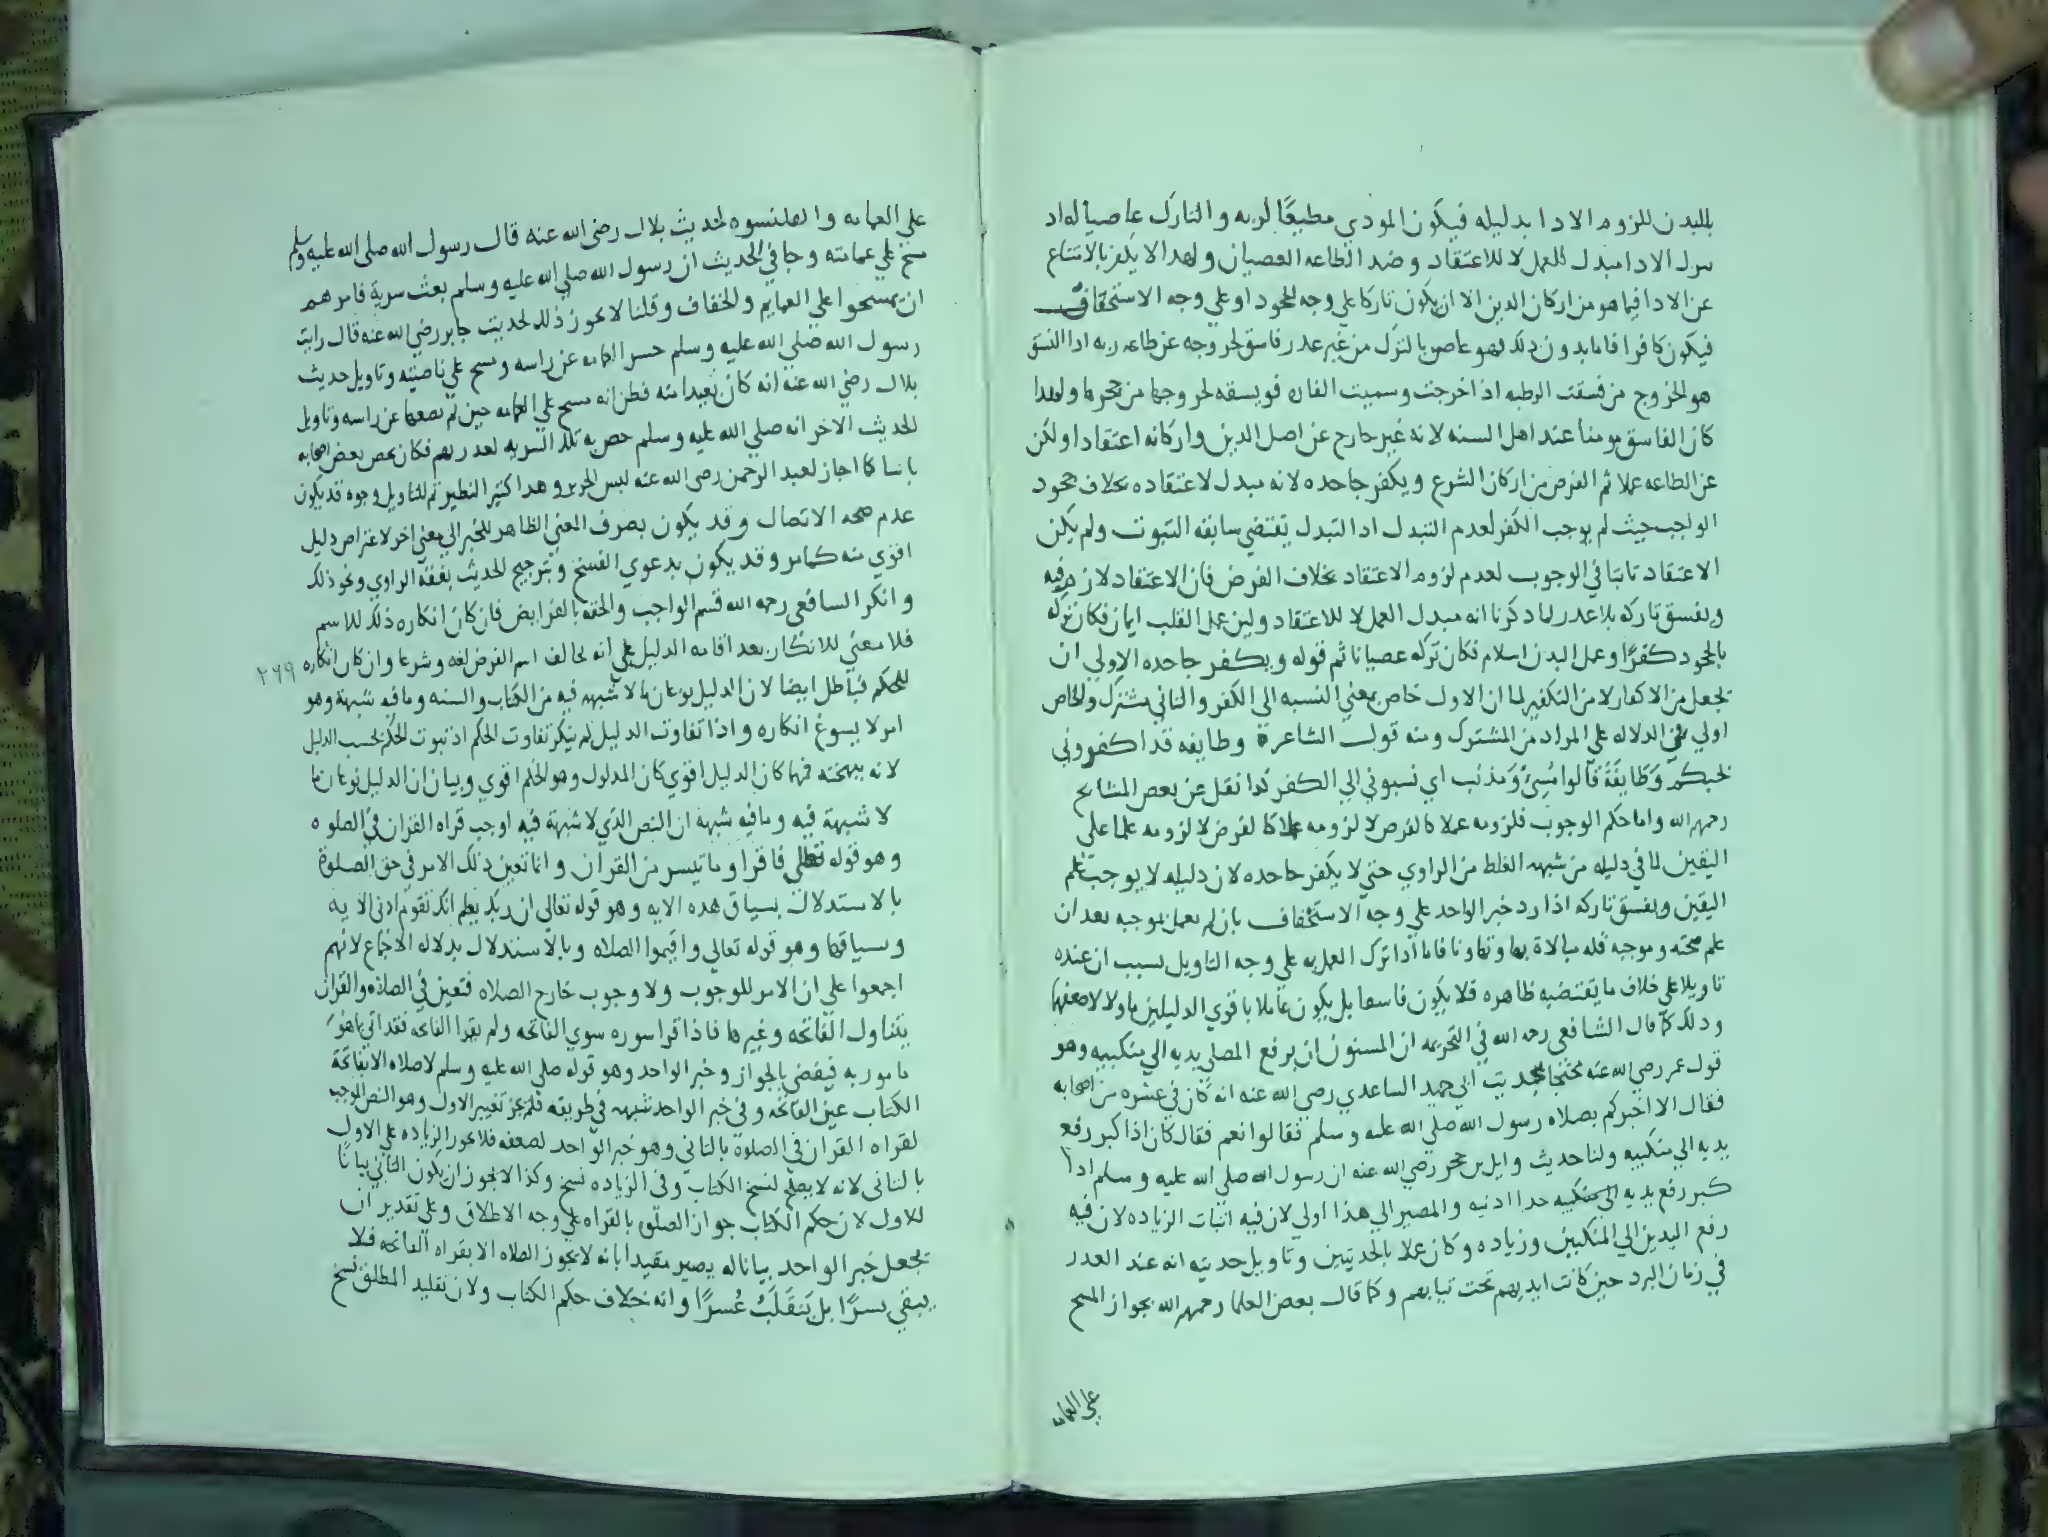 بالبدن للزوم الادا بدليله فيكون المودي مطيعًا لربه والتارك عاصيا له اد
سرك الادا مبدل للعمل لا للاعتقاد وضد الطاعه العصيان ولهدا لا يكفر بالامتناع
عن الادا فيما هو من اركان الدين الا ان يكون تاركا علي وجه الجحود او علي وجه الاستخفاف
فيكون كافرا فاما بدون ذلك فهو عاص بالترك من غير عدر فاسق لخروجه عن طاعه ربه ادا الفسق
هو الخروج من فسقت الرطبه اذ اخرجت وسميت الفاره فويسقه لخروجها من جحرها ولهدا
كان الفاسق مومنا عند اهل السنه لانه غير خارج عن اصل الدين واركانه اعتقادا ولكن
عن الطاعه عملا ثم الفرض من اركان الشرع ويكفر جاحده لانه مبدل لاعتقاده بخلاف جحود
الواجب حيث لم يوجب الكفر لعدم التبدل اد التبدل يقتضي سابقه الثبوت ولم يكن
الاعتقاد ثابتا في الوجوب لعدم لزوم الاعتقاد بخلاف الفرض فان الاعتقاد لازم فيه
ويفسق تاركه بلا عدر لما دكرنا انه مبدل العمل لا للاعتقاد ولين عمل القلب ايمان فكان تركه
بالجحود كفرًا وعمل البدن اسلام فكان تركه عصيانا ثم قوله ويكفر جاحده الاولي ان
يجعل من الاكفار لا من التكفير لما ان الاول خاص بمعني النسبه الى الكفر والثاني مشترك والخاص
اولي في الدلاله علي المراد من المشترك ومنه قول الشاعرة وطايفه قد اكفروني
بحبكم وَطَايفَةُ قالوا مُسِيئ وَمذنب اي نسبوني الي الكفر كدا نقل عن بعض المشايخ
رحمهم الله واما حكم الوجوب فلزومه عملا كالفرض لا لزومه عملا كالفرض لا لزومه علما على
اليقين لما في دليله من شبهه الغلط من الراوي حتي لا يكفر جاحده لان دليله لا يوجب علم
اليقين ويفسق تاركه اذا رد خبر الواحد علي وجه الاستخفاف بان لم يعمل بموجبه بعد ان
علم صحته وموجبه قله مبالاة بها وتهاونا فاما ادا ترك العمل به علي وجه التاويل بسبب ان عنده
تاويلا علي خلاف ما يقتضيه ظاهره فلا يكون فاسقا بل يكون عاملا باقوي الدليلين ماولا لاضعفهما
ودلك كما قال الشافعي رحمه الله في التحريمه ان المسنون ان يرفع المصلي يديه الي منكبيه وهو
قول عمر رضي الله عنه محتجا بحديث ابي حميد الساعدي رضي الله عنه انه كان في عشره من اصحابه
فقال الا اخبركم بصلاه رسول الله صلي الله عليه وسلم فقالوا نعم فقال كان اذا كبر رفع
يديه الي منكبيه ولنا حديث وايل بن حجر رضي الله عنه ان رسول الله صلي الله عليه وسلم ادا
كبر رفع يديه الي منكبيه حدا ادنيه والمصير الي هذا اولي لان فيه اثبات الزياده لان فيه
رفع اليدين الي المنكبين وزياده وكان عملا بالحديثين وتاويل حديثه انه عند العدر
في زمان البرد حين كانت ايديهم تحت ثيابهم وكما قال بعض العلما رحمهم الله بجواز المسح
علي العمامه
علي العمامه والقلنسوه لحديث بلال رضي الله عنه قال رسول الله صلى الله عليه وسلم
مسح علي عمامته وجا في الحديث ان رسول الله صلي الله عليه وسلم بعث سرية فامرهم
ان يمسحوا علي العمايم والخفاف وقلنا لا يجوز ذلك لحديث جابر رضي الله عنه قال رايت
رسول الله صلي الله عليه وسلم حسر العمامه عن راسه ومسح علي ناصيته وتاويل حديث
بلال رضي الله عنه انه كان بعيدا منه فظن انه مسح علي العمامه حين لم يضعها عن راسه وتاويل
الحديث الاخر انه صلي الله عليه وسلم خص به تلك السريه لعدرهم فكان يخص بعض اصحابه
باشيا كما اجاز لعبد الرحمن رضي الله عنه لبس الحرير وهدا كثير النظير ثم للتاويل وجوه قد يكون
عدم صحه الاتصال وقد يكون بصرف المعني الظاهر للخبر الي معني اخر لاعتراض دليل
اقوي منه كمامر وقد يكون بدعوي الفسخ وبترجيح الحديث بفقه الراوي ونحو ذلك
وانكر الشافعي رحمه الله قسم الواجب والحقه بالفرايض فان كان انكاره ذلك للاسم
فلا معني للانكار بعد اقامه الدليل علي انه يخالف اسم الفرض لغه وشرعا وان كان انكاره ٢٦٩
للحكم فباطل ايضا لان الدليل نوعان ما لا شبهه فيه من الكتاب والسنه وما فيه شبهة وهو
امر لا يسوغ انكاره واذا تفاوت الدليل لم ينكر تفاوت الحكم اذ ثبوت الحكم بحسب الدليل
لانه نتيجته فمهما كان الدليل اقوي كان المدلول وهو الحكم اقوي وبيان ان الدليل نوعان ما
لا شبهة فيه وما فيه شبهة ان النص الذي لا شبهة فيه اوجب قراه القران في الصلوه
وهو قوله تعالي فاقروا ما تيسر من القران وانما تعين ذلك الامر في حق الصلوة
بالاستدلال بسياق هده الايه وهو قوله تعالي ان ربك يعلم انك تقوم ادني الايه
وسياقها وهو قوله تعالي واقيموا الصلاه وبالاستدلال بدلاله الاجماع لانهم
اجمعوا علي ان الامر للوجوب ولا وجوب خارج الصلاه فتعين في الصلاه والقران
يتناول الفاتحه وغيرها فاذا قرا سوره سوي الفاتحه ولم يقرا الفاتحه فقد اتي بما هو
مامور به فيقضي بالجواز وخبر الواحد وهو قوله صلي الله عليه وسلم لا صلاه الا بفاتحة
الكتاب عين الفاتحه وفي خبر الواحد شبهه في طريقه فلم يجز تغيير الاول وهو النص الموجب
لقراه القران في الصلوة بالثاني وهو خبر الواحد لضعفه فلا يجوز الزياده علي الاول
بالثاني لانه لا يصلح لنسخ الكتاب وفي الزياده نسخ وكذا لا يجوز ان يكون الثاني بيانًا
للاول لان حكم الكتاب جواز الصلوه بالقراه علي وجه الاطلاق وعلي تقدير ان
يجعل خبر الواحد بيانا له يصير مقيدا بانه لا يجوز الصلاه الا بقراه الفاتحه فلا
يبقي يسرًا بل يَنقَلَبُ عُسرًا وانه خلاف حكم الكتاب ولان تقليد المطلق نسخ